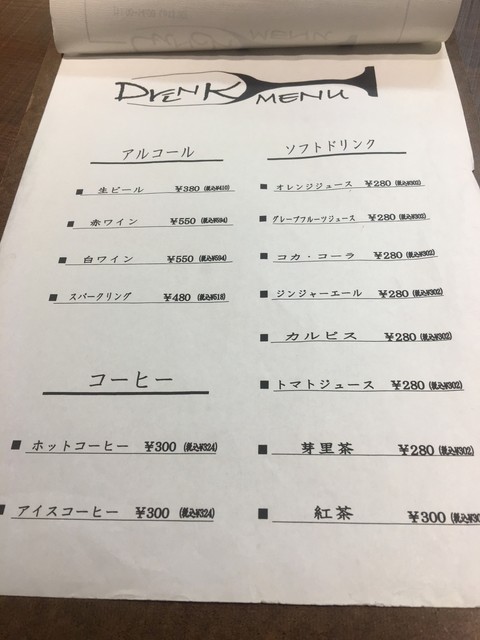 DrENK MENU
アルコール
■ 生ビール ¥380 (税込¥410)
■ 赤ワイン ¥550 (税込¥594)
■ 白ワイン ¥550 (税込¥594)
■ スパークリング ¥480 (税込¥518)
コーヒー
■ ホットコーヒー ¥300 (税込¥324)
■ アイスコーヒー ¥300 (税込¥324)
ソフトドリンク
■ オレンジジュース ¥280 (税込¥302)
■ グレープフルーツジュース ¥280 (税込¥302)
■ コカ・コーラ ¥280 (税込¥302)
■ ジンジャーエール ¥280 (税込¥302)
■ カルピス ¥280 (税込¥302)
■ トマトジュース ¥280 (税込¥302)
■ 芽里茶 ¥280 (税込¥302)
■ 紅茶 ¥300 (税込¥30